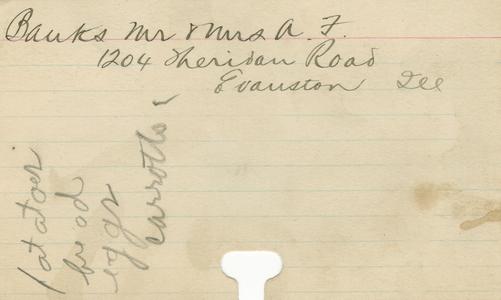 Banks Mr & Mrs A. F.
1204 Sheridan Road
Evanston Ill
patatoes
bread
eggs
carrotts